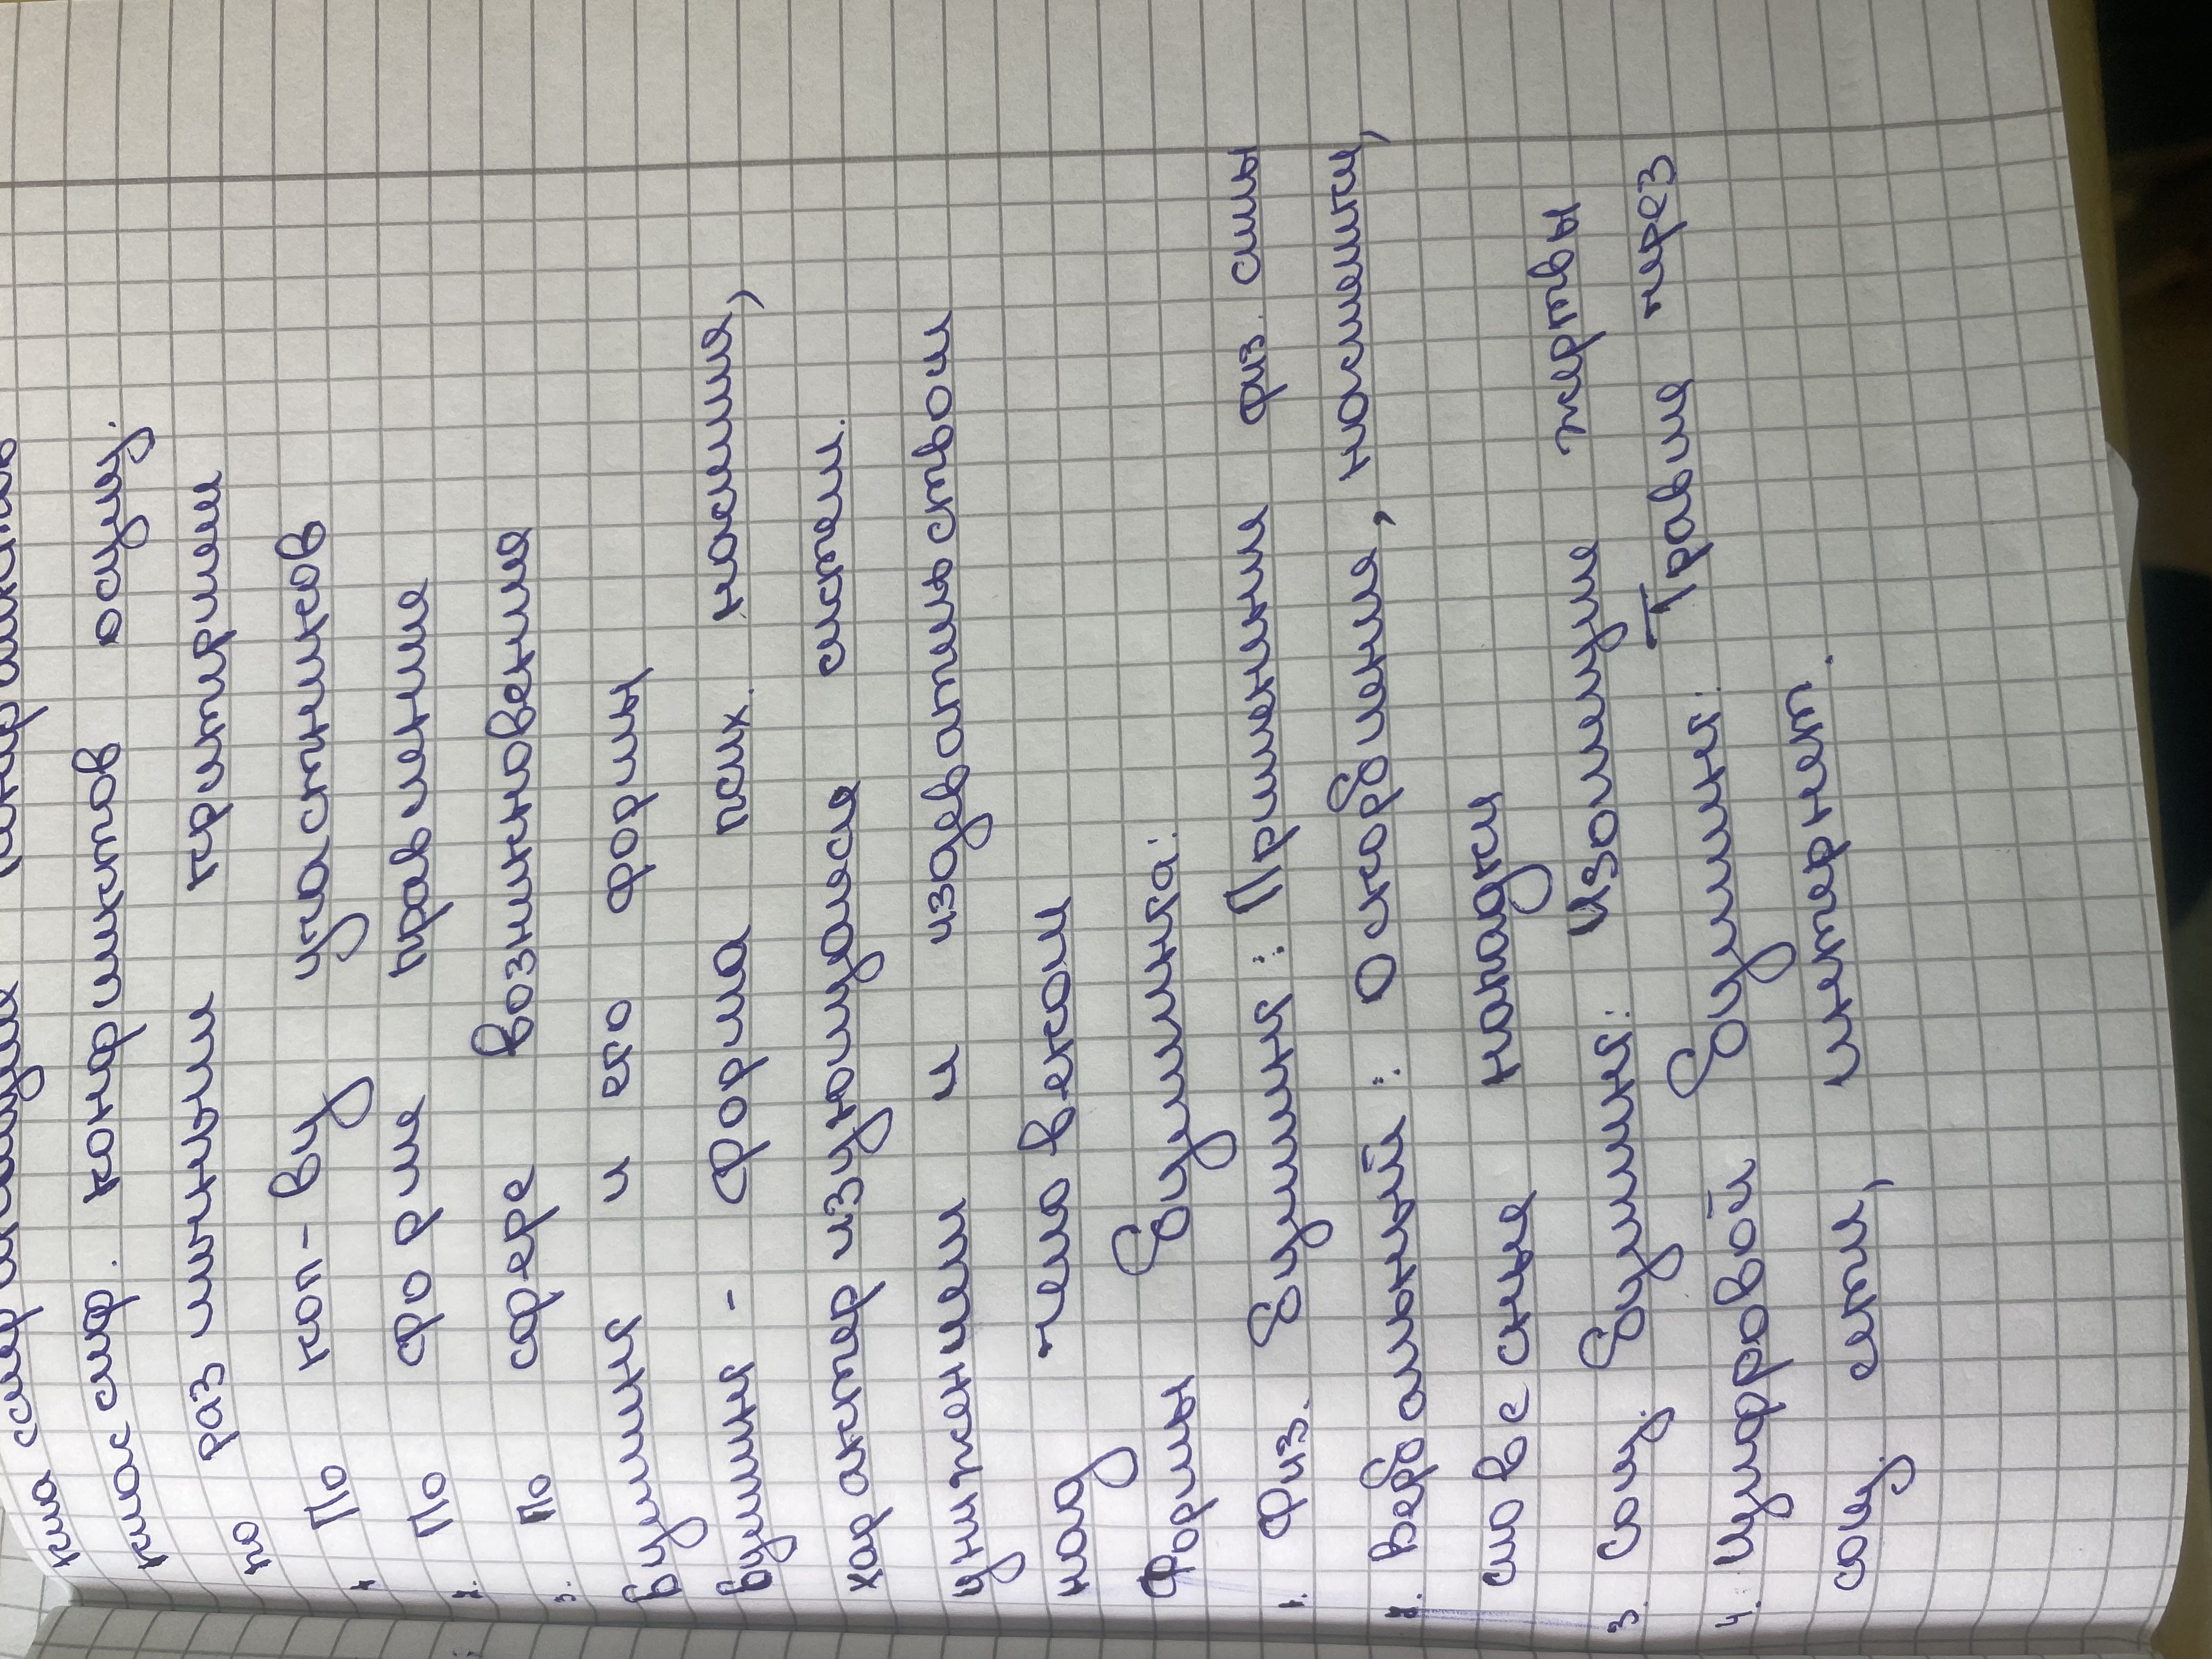 классиф. конфликтов осущ.
по различным критериям
1. По кол-ву участников
2. По форме правления
3. По сфере возникновения
Буллинг и его формы
Буллинг - форма псих. насилия,
характеризующаяся систем.
унижением и издевательством
над человеком
Формы буллинга:
1. Физ. буллинг: Применении физ. силы
2. Вербальный: Оскорбление, насмешки,
словесные нападки
3. Соц. буллинг: Изоляция жертвы
4. Цифровой буллинг: Травля через
соц. сети, интернет.